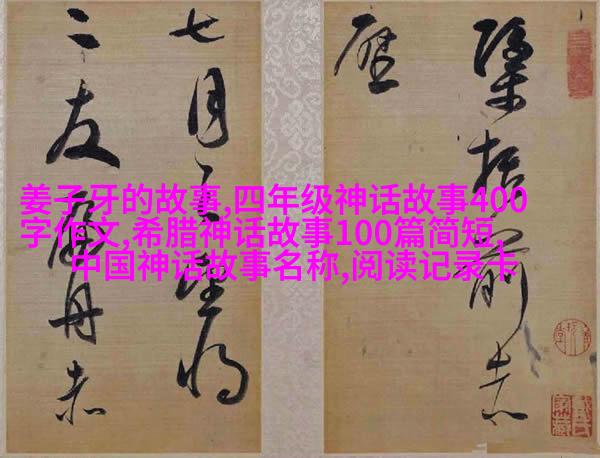 姜子牙的故事,四年级神话故事400
字作文,希腊神话故事100篇简短,
中国神话故事名称,阅读记录卡
括前赤
壁
七月之望将
二友扁舟赤